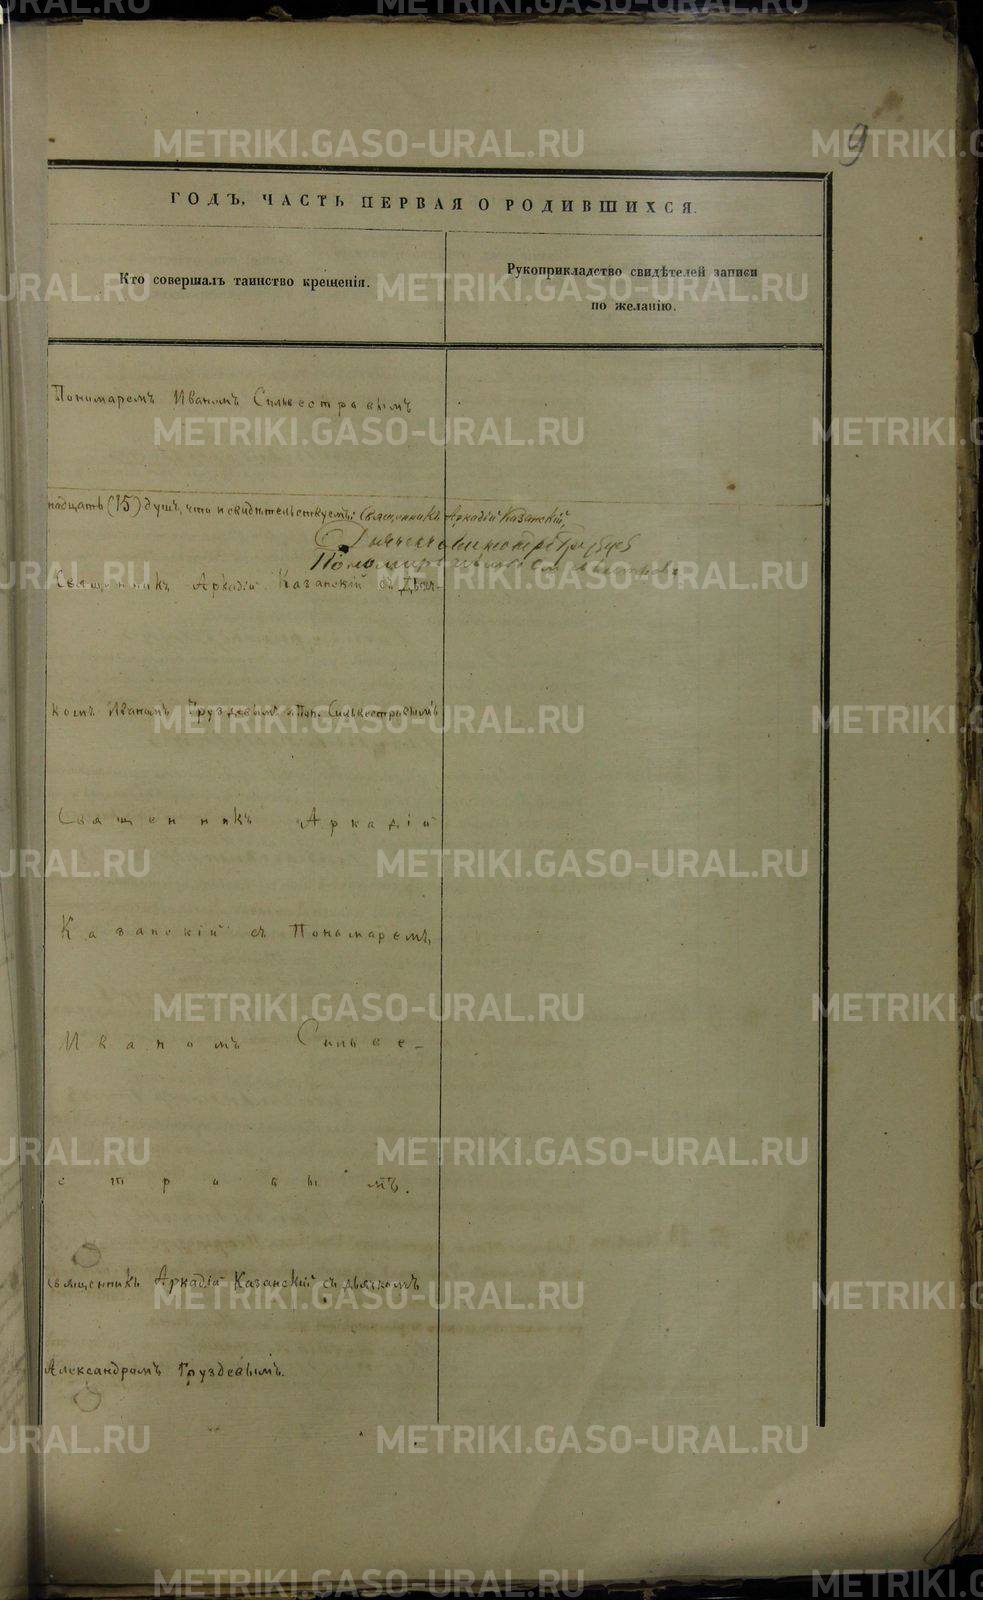 9
ГОДЪ, ЧАСТЬ ПЕРВАЯ О РОДИВШИХСЯ.
Кто совершалъ таинство крещенія.
Рукоприкладство свидѣтелей записи
по желанію.
Пономаремъ Иваномъ Сильвестровымъ
надцать (15) душъ, что и свидѣтельствуемъ: Священникъ Аркадій Казанскій,
Священникъ Аркадій Казанскій съ Дьяч-
комъ Иваномъ Груздевымъ и Пон. Сильвестровымъ
Священникъ Аркадій
Казанскій съ Пономаремъ,
Иваномъ Сильве-
стровымъ.
Священникъ Аркадій Казанскій съ дьячкомъ
Александромъ Груздевымъ.
METRIKI.GASO-URAL.RU